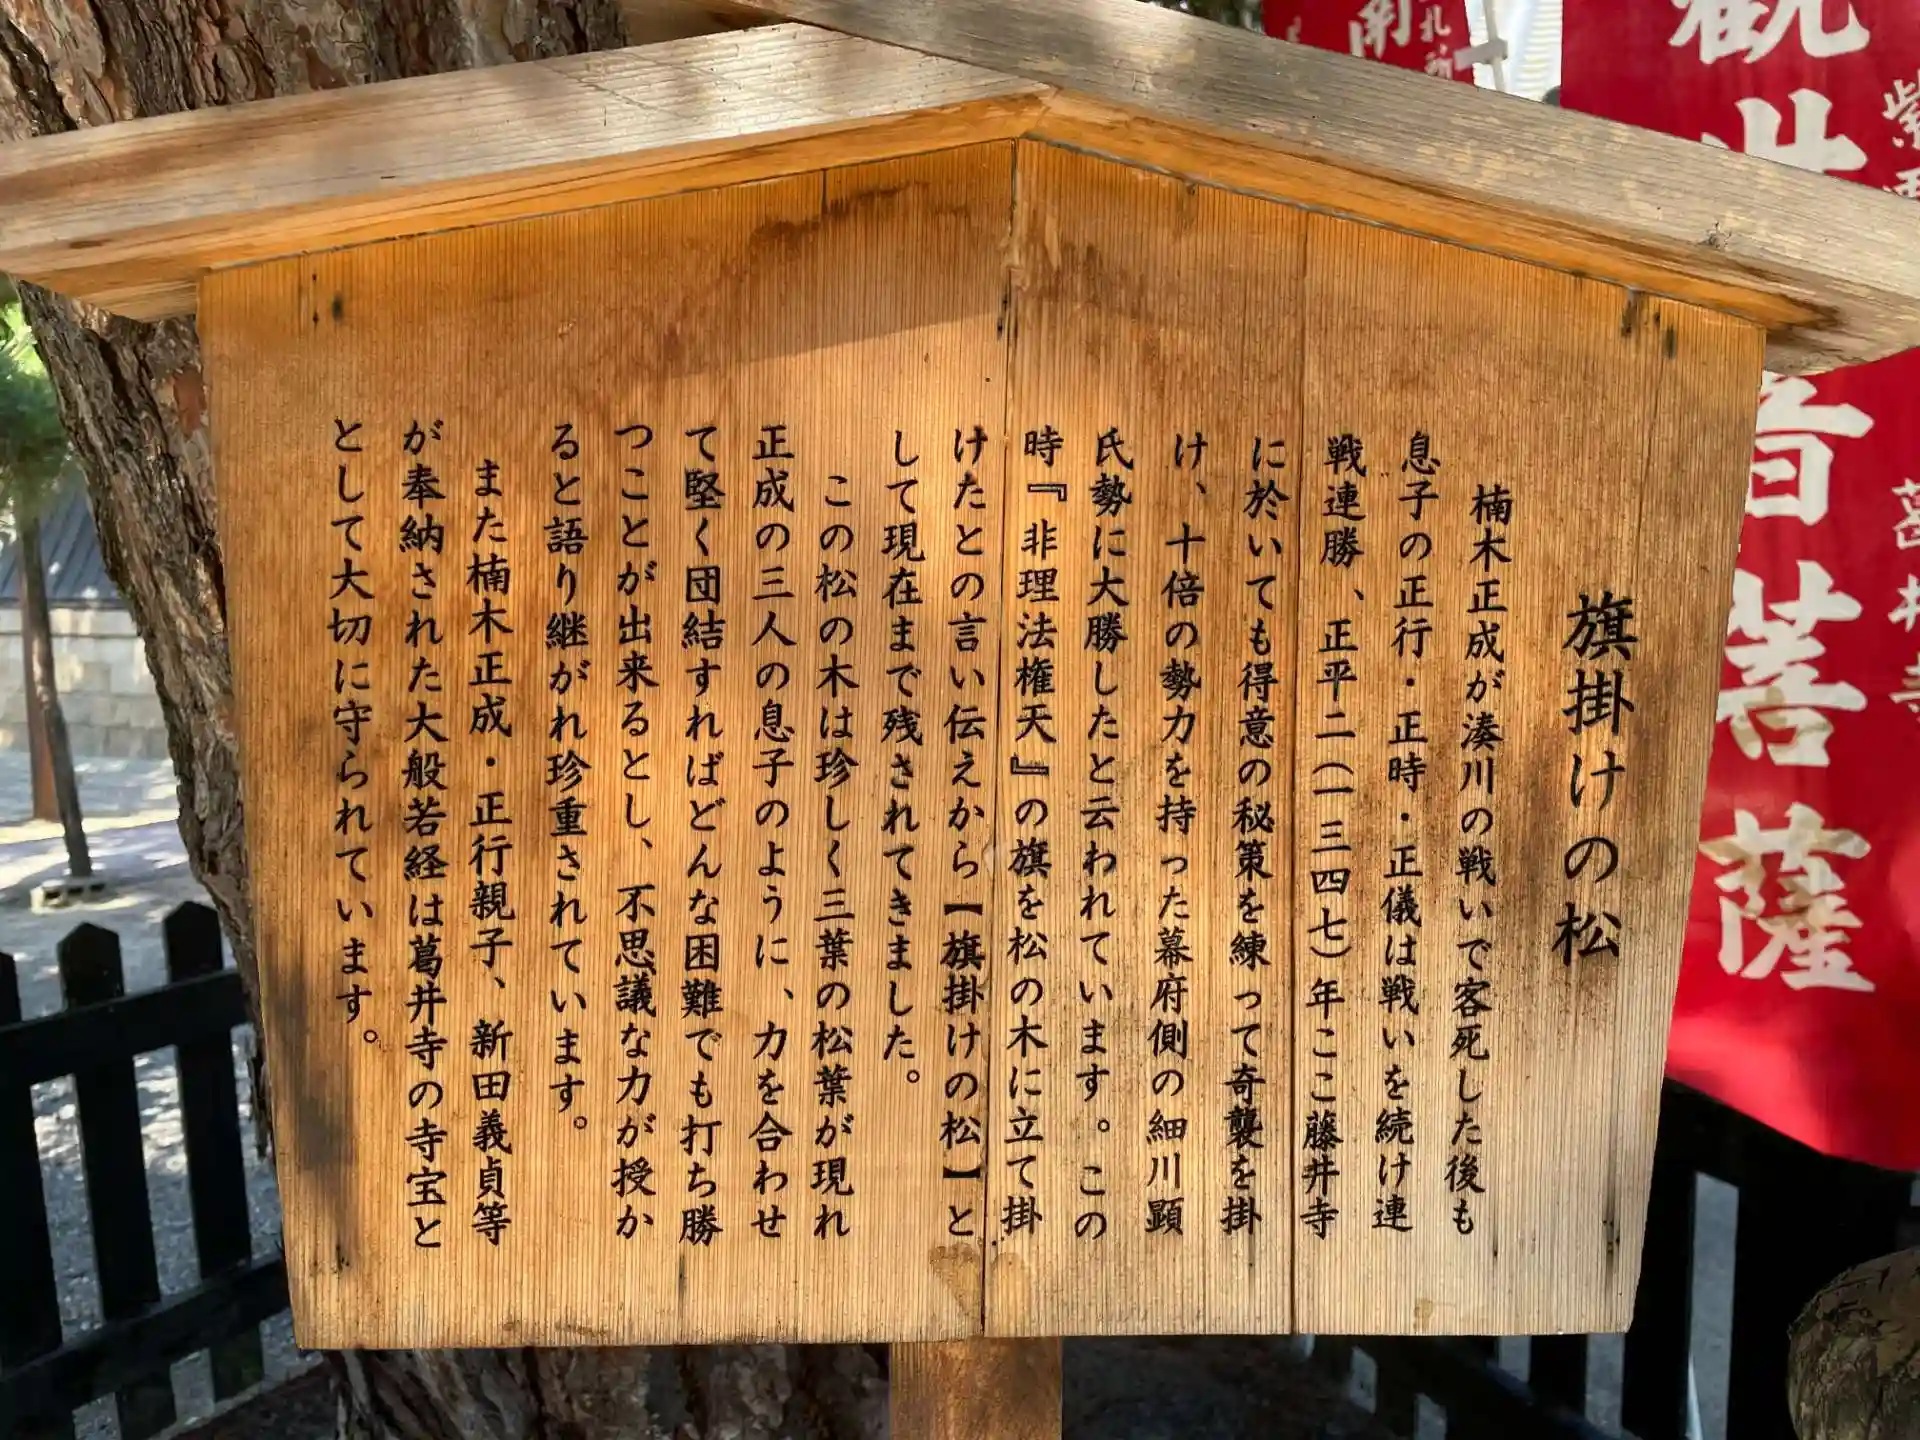 旗掛けの松
楠木正成が湊川の戦いで客死した後も
息子の正行・正時・正儀は戦いを続け連
戦連勝、正平二(一三四七)年ここ藤井寺
に於いても得意の秘策を練って奇襲を掛
け、十倍の勢力を持った幕府側の細川顕
氏勢に大勝したと云われています。この
時『非理法権天』の旗を松の木に立て掛
けたとの言い伝えから【旗掛けの松】と
して現在まで残されてきました。
この松の木は珍しく三葉の松葉が現れ
正成の三人の息子のように、力を合わせ
て堅く団結すればどんな困難でも打ち勝
つことが出来るとし、不思議な力が授か
ると語り継がれ珍重されています。
また楠木正成・正行親子、新田義貞等
が奉納された大般若経は葛井寺の寺宝と
として大切に守られています。
観世音菩薩
紫雲
葛井寺
札所